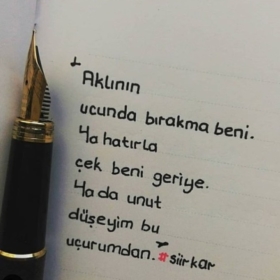 Aklının
ucunda bırakma beni.
Ya hatırla
çek beni geriye.
Ya da unut
düşeyim bu
uçurumdan. #siirkar